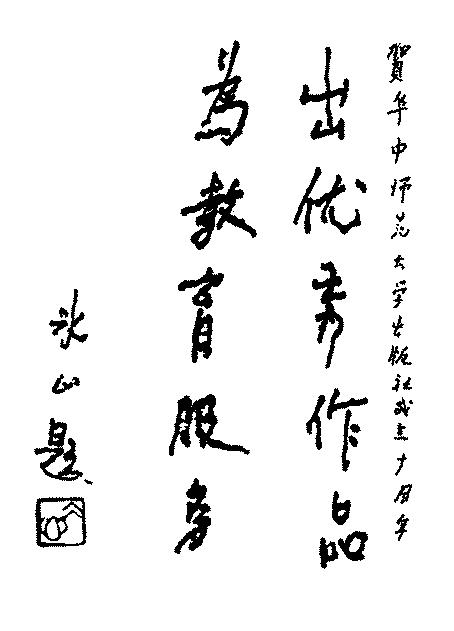 賀华中师范大学出版社成立十周年
出优秀作品
為教育服务
冰山题